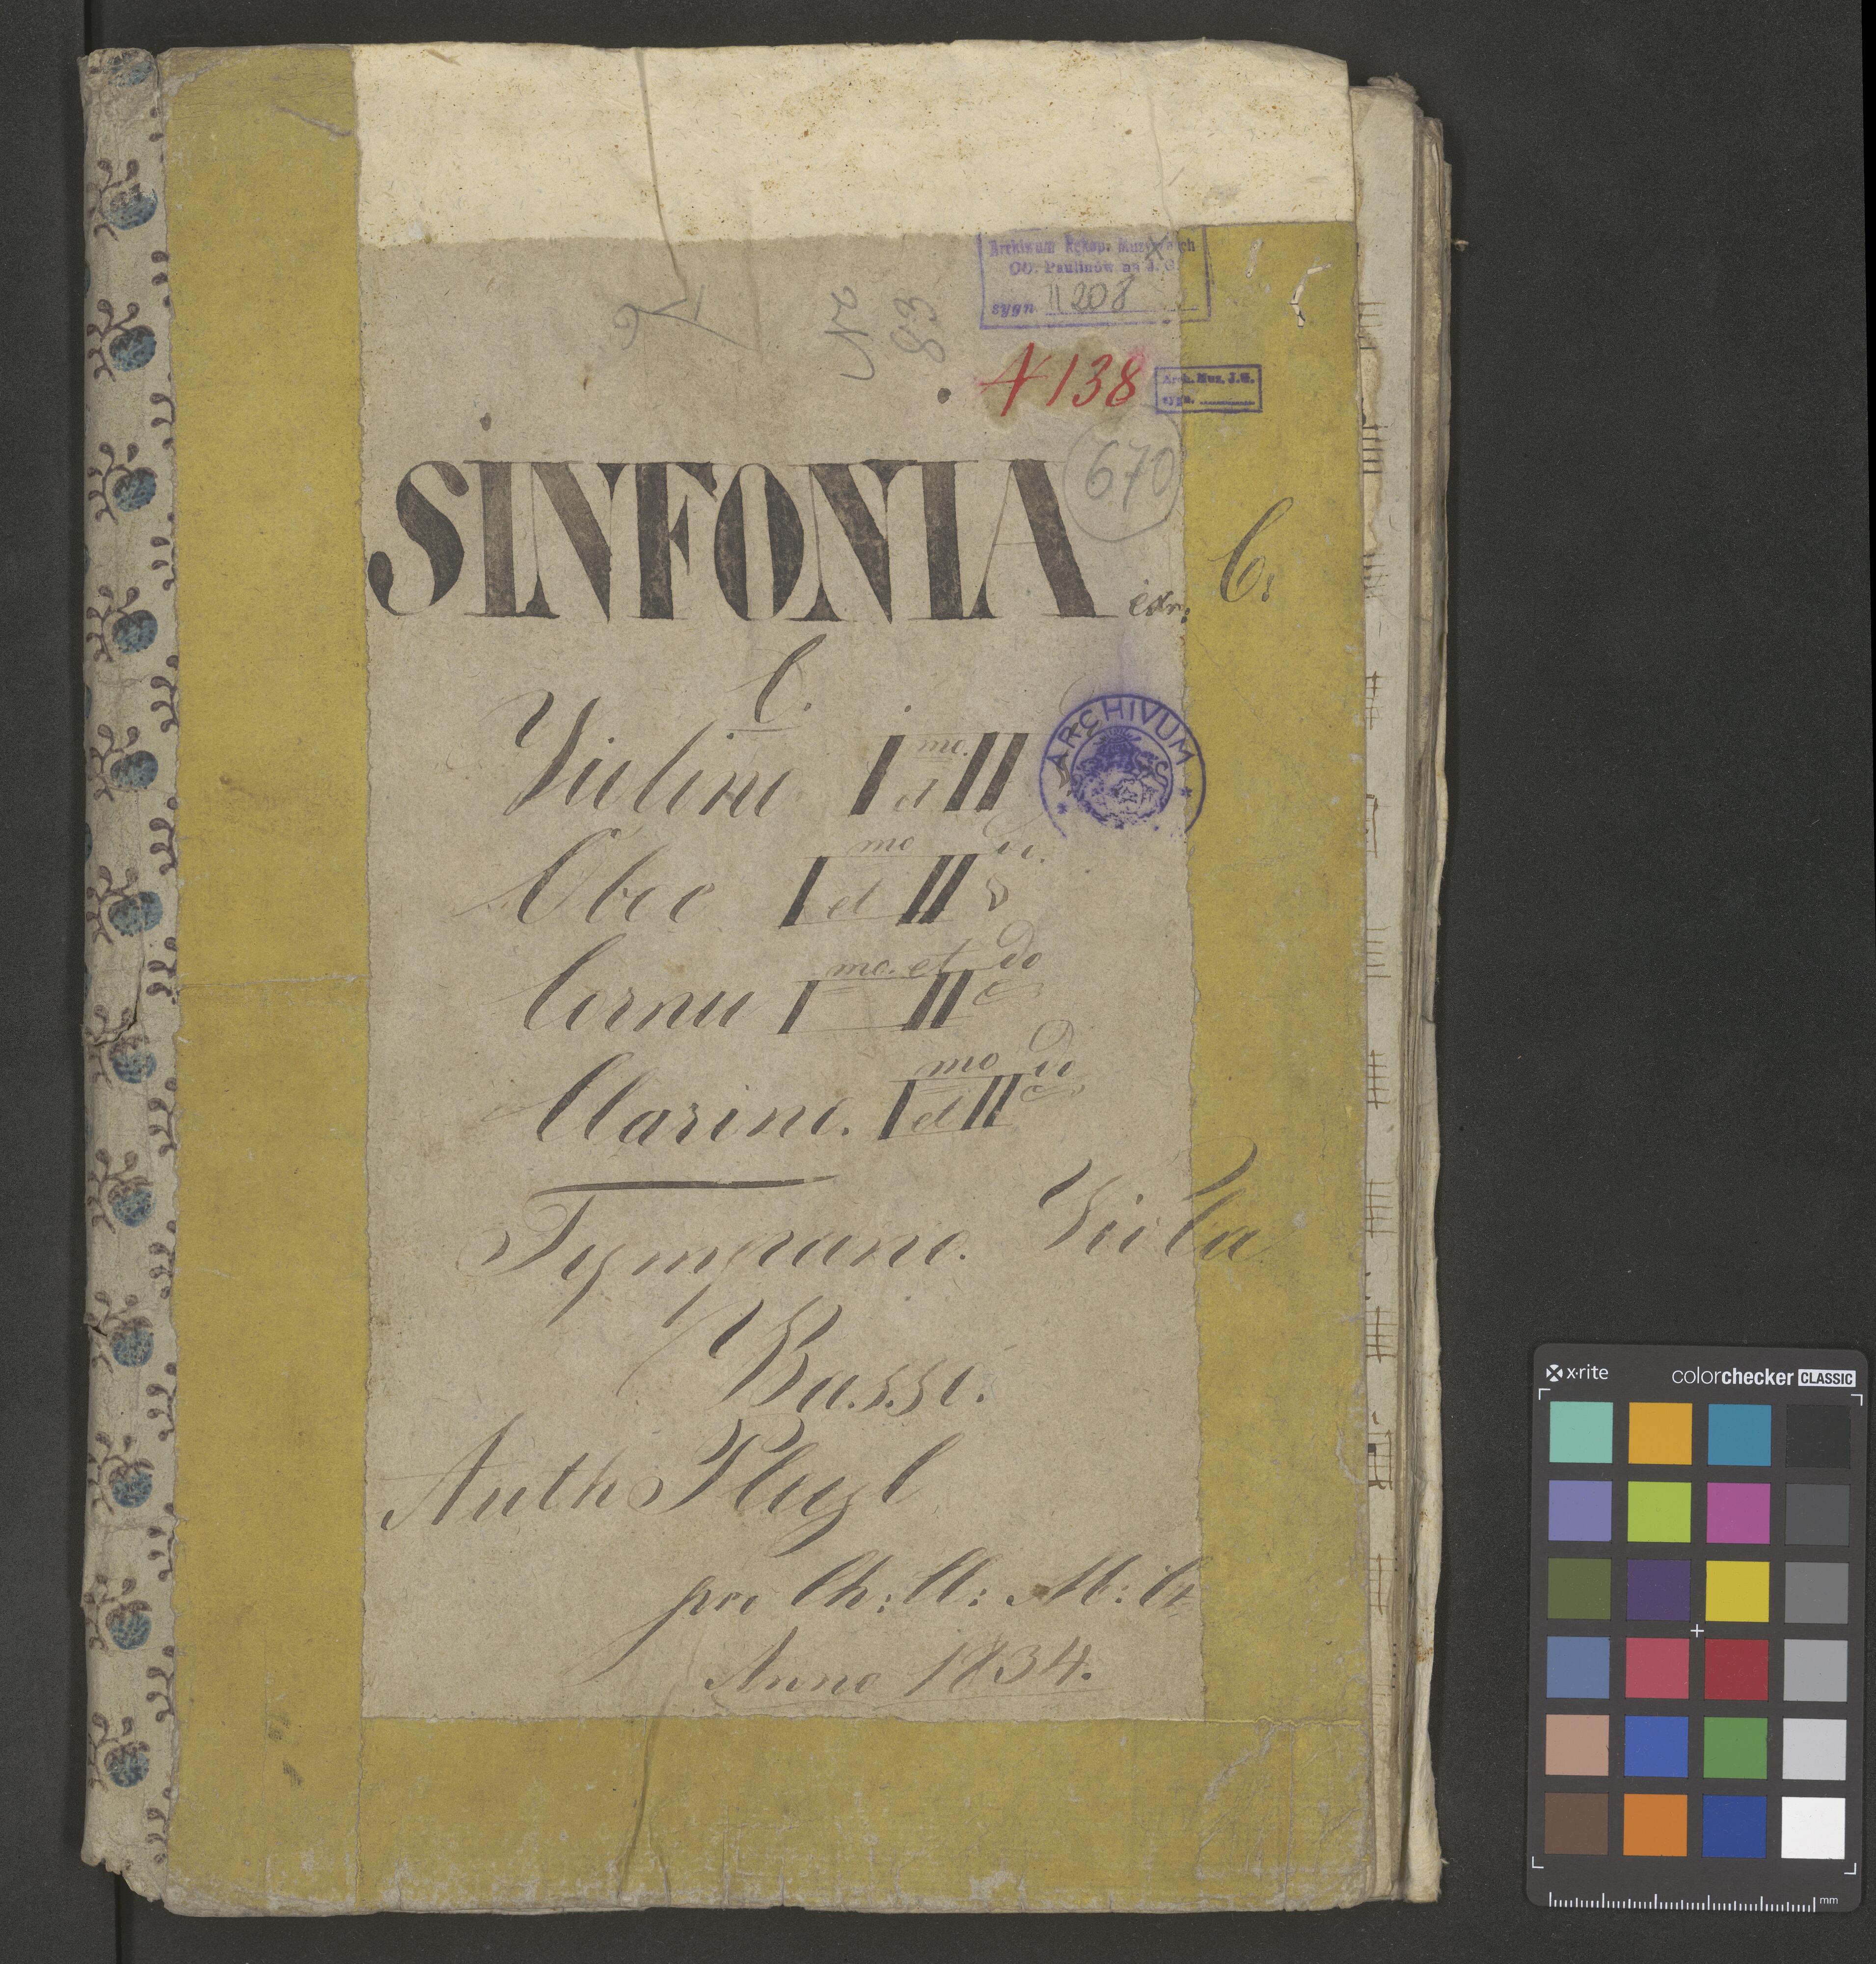 Archiwum Rękop. Muzycznych
OO. Paulinów na J. G.
sygn. II 208
No
83
N 138
Arch. Muz. J.G.
sygn.
670
SINFONIA ex n: 6.
C.
Violino Imo et II
Oboe Imo et II do
Cornu Imo et II do
Clarino. Imo et II do
Tympano. Viola
Basso.
Auth Pleyl
pro Ch: M: Cl
Anno 1834.
ARCHIVUM
x-rite
colorchecker CLASSIC
mm